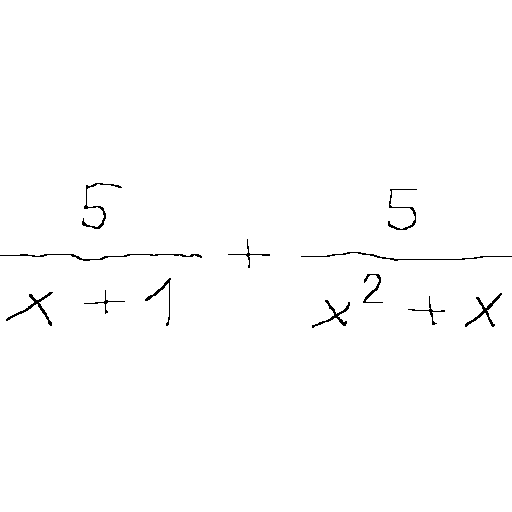 \frac{5}{x + 1} + \frac{5}{x^2 + x}